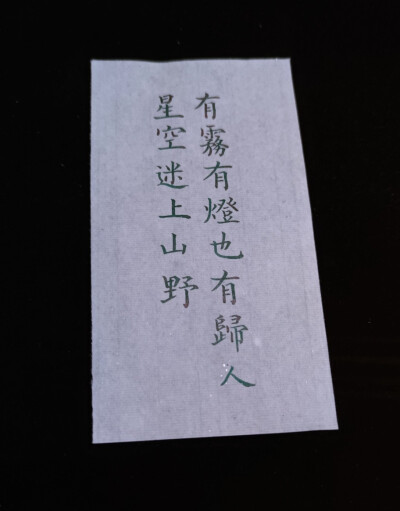 有霧有燈也有歸人
星空迷上山野